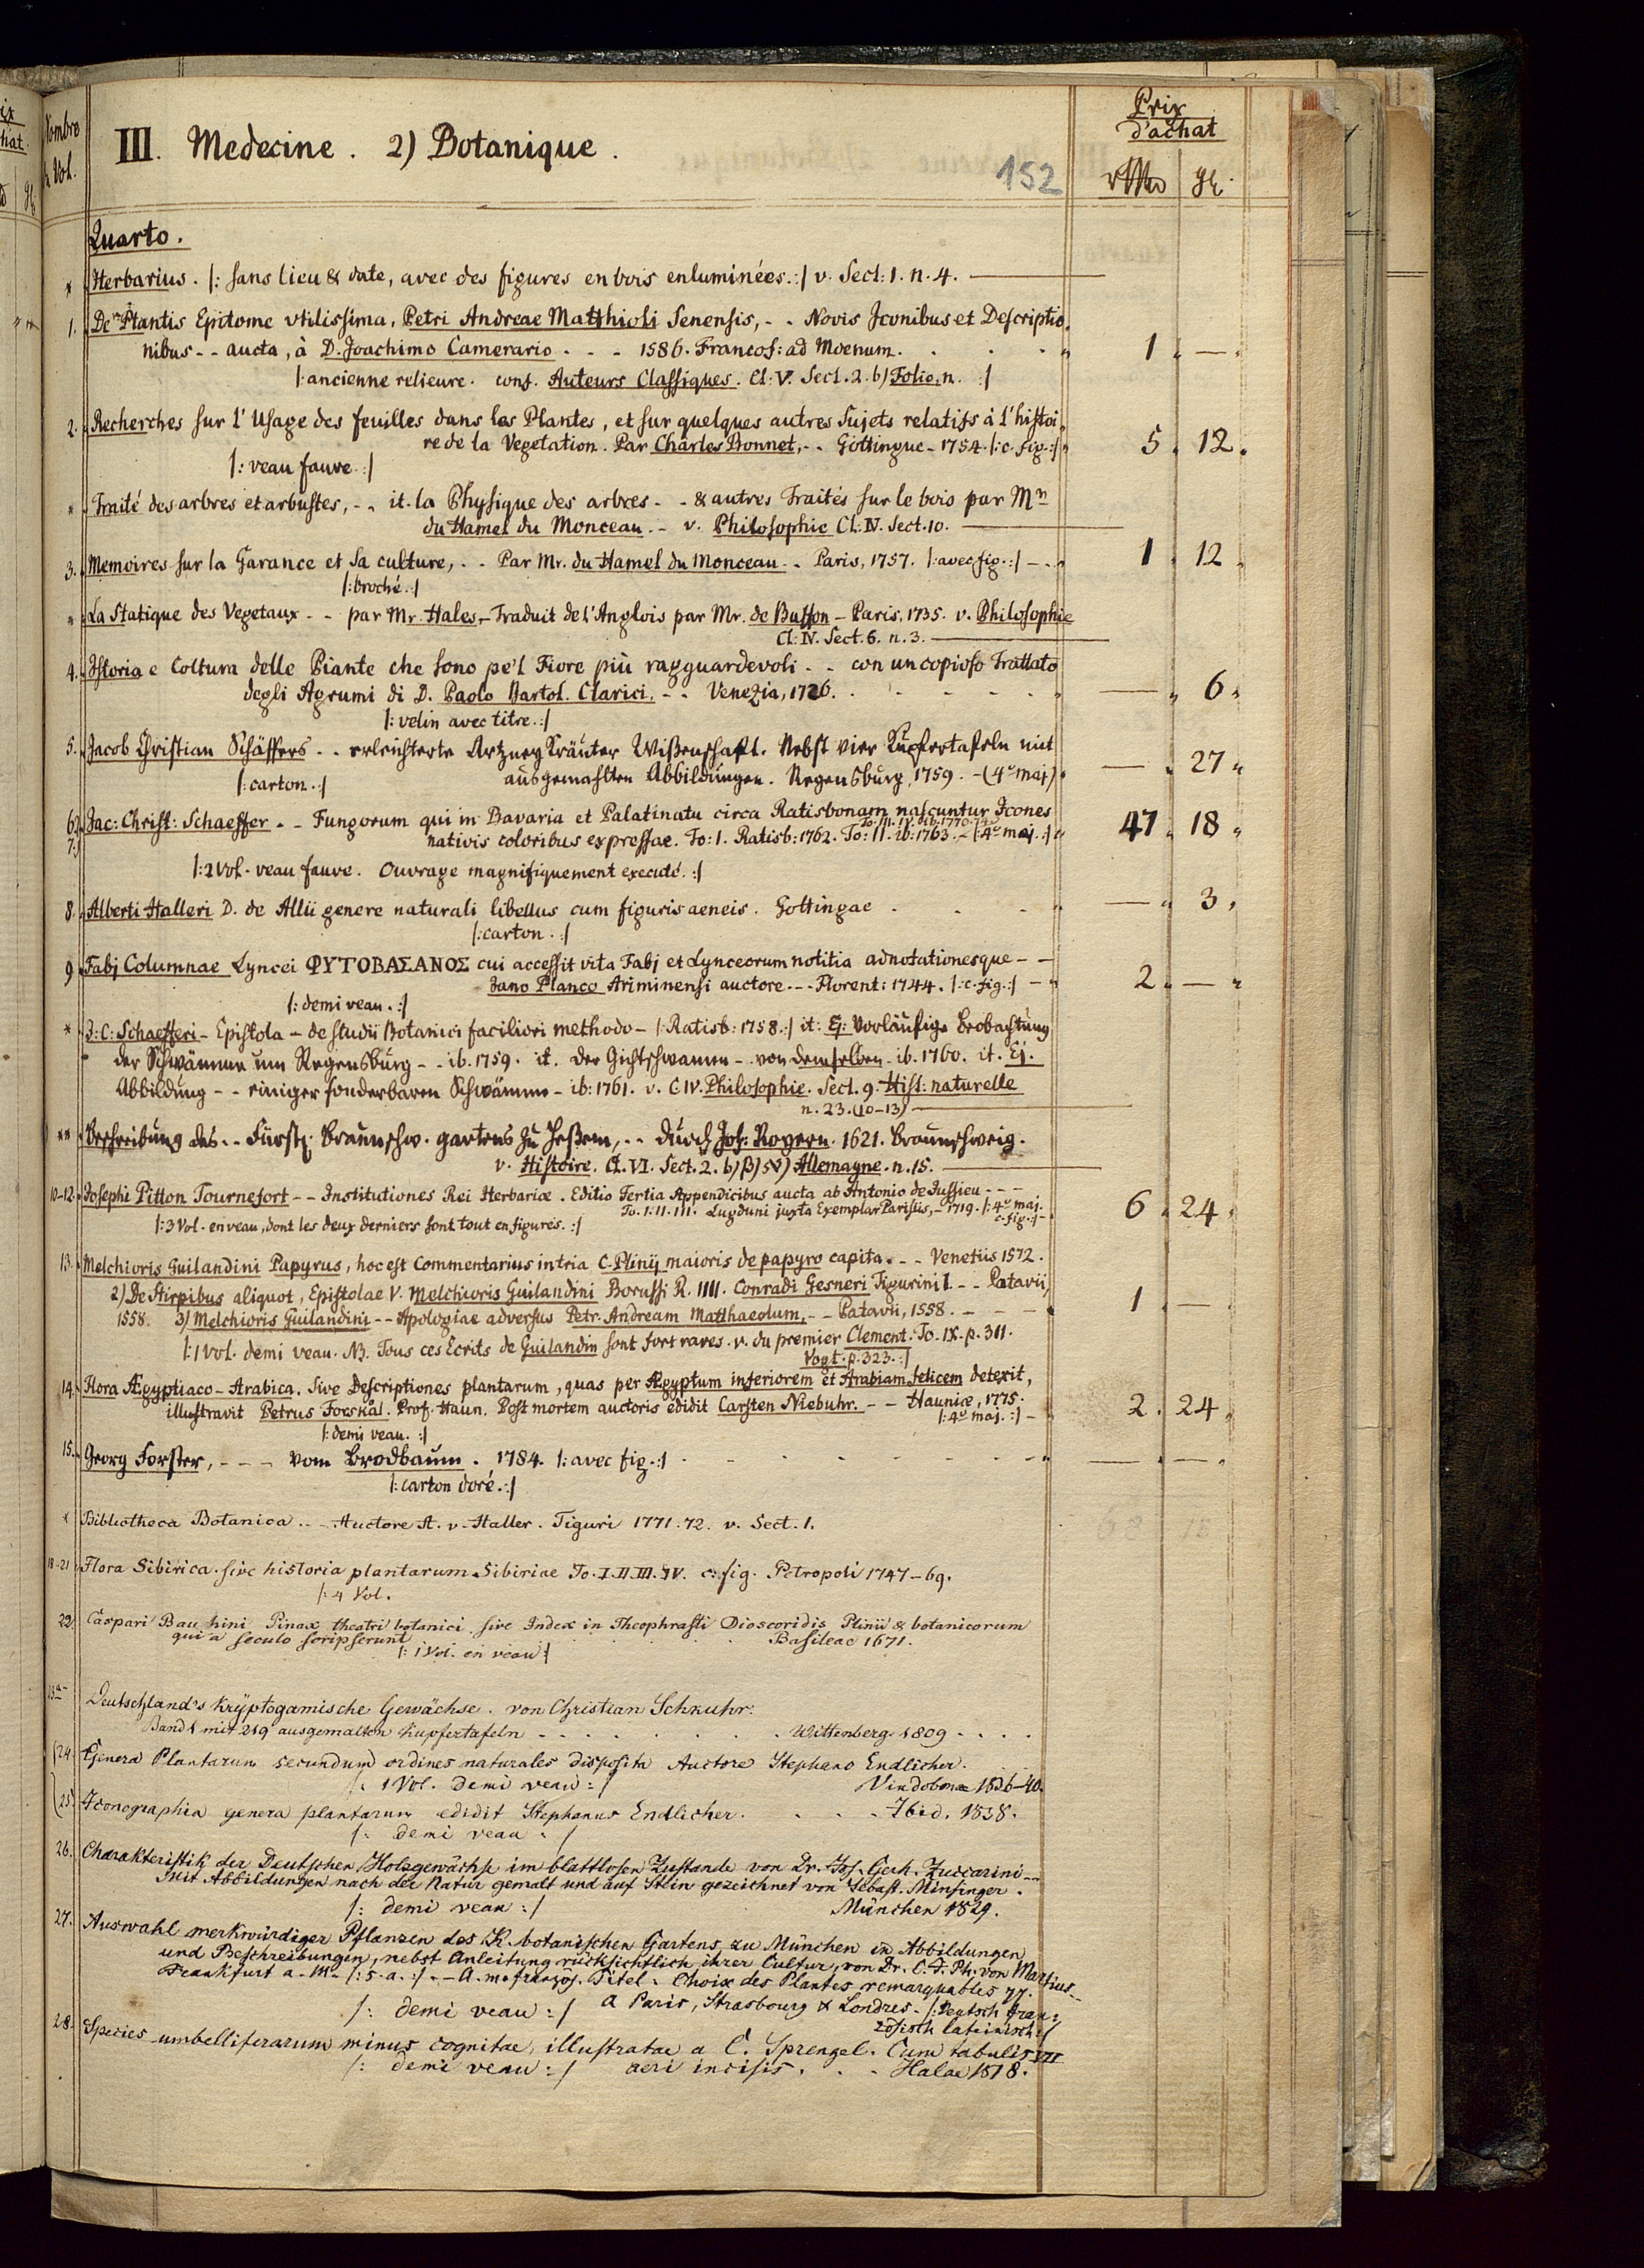 Nombre
de Vol.
III. Medecine. 2) Botanique.
152
Prix
d'achat
gl.
Quarto.
* Herbarius. /: sans lieu & date, avec des figures en bois enluminées. :/ v. Sect: 1. n. 4.
1. De Plantis Epitome vtilissima, Petri Andreae Matthioli Senensis, - - Novis Iconibus et Descriptio-
nibus - - aucta, à D. Joachimo Camerario - - - 1586. Francof: ad Moenum. 1 . — .
/: ancienne relieure. conf. Auteurs Classiques. Cl: V. Sect. 2. b) Folio, n. :/
2. Recherches sur l'Usage des feuilles dans les Plantes, et sur quelques autres Sujets relatifs à l'histoi-
re de la Vegetation. Par Charles Bonnet, - - Gottingue - 1754. /: c. fig. :/ 5 . 12 .
/: veau fauve. :/
* Traité des arbres et arbustes, - - it. la Physique des arbres - - & autres Traités sur le bois par Mr
du Hamel du Monceau. - v. Philosophie Cl: IV. Sect. 10.
3. Memoires sur la Garance et sa culture, - - Par Mr. du Hamel du Monceau - - Paris, 1757. /: avec fig. :/ - - 1 . 12 .
/: broché. :/
* La Statique des Vegetaux - - par Mr. Hales, - Traduit de l'Anglois par Mr. de Buffon - Paris, 1735. v. Philosophie
Cl: IV. Sect. 6. n. 3.
4. Istoria e Coltura delle Piante che sono pe'l Fiore più ragguardevoli - - con un copioso Trattato
degli Agrumi di D. Paolo Bartol. Clarici, - - Venezia, 1726. — . 6 .
/: velin avec titre. :/
5. Jacob Christian Schäffers - - erleichterte Artzney Kräuter Wißenschafft. Nebst vier Kupfertafeln mit
ausgemahlten Abbildungen. Regensburg, 1759. - (4º maj) — . 27 .
/: carton. :/
6. 7. Jac: Christ: Schaeffer - - Fungorum qui in Bavaria et Palatinatu circa Ratisbonam nascuntur Icones
To: III. IV. ib. 1770. 74
nativis coloribus expressae. To: I. Ratisb: 1762. To: II. ib: 1763. - /: 4º maj. :/ 47 . 18 .
/: 2 Vol. veau fauve. Ouvrage magnifiquement executé. :/
8. Alberti Halleri D. de Allii genere naturali libellus cum figuris aeneis. Gottingae — . 3 .
/: carton. :/
9. Fabj Columnae Lyncei ΦΥΤΟΒΑΣΑΝΟΣ cui accessit vita Fabj et Lynceorum notitia adnotationesque - -
Jano Planco Ariminensi auctore - - - Florent: 1744. /: c. fig. :/ - 2 . — .
/: demi veau. :/
* J: C: Schaefferi - Epistola - de studii Botanici faciliori methodo - /: Ratisb: 1758. :/ it: Ej: Vorläufige Beobachtung
der Schwämme um Regensburg - - ib. 1759. it. der Gichtschwamm - von demselben - ib. 1760. it. Ej.
Abbildung - - einiger sonderbaren Schwämme - ib: 1761. v. C. IV. Philosophie. Sect. 9. Hist: naturelle
n. 23. (10-13)
** Beschreibung des - - Fürstl. Braunschw. gartens zu Heßem, - - durch Joh: Royern. 1621. Braunschweig.
v. Histoire. Cl. VI. Sect. 2. b) β) Allemagne. n. 15.
10-12. Josephi Pitton Tournefort - - Institutiones Rei Herbariæ. Editio Tertia Appendicibus aucta ab Antonio de Jussieu - - -
To. I. II. III. Lugduni juxta Exemplar Parisiis, - 1719. /: 4º maj. c. fig. :/ 6 . 24 .
/: 3 Vol. en veau, dont les deux derniers sont tout en figures. :/
13. Melchioris Guilandini Papyrus, hoc est Commentarius in tria C. Plinij maioris de papyro capita. - - Venetiis 1572.
2) De Stirpibus aliquot, Epistolae V. Melchioris Guilandini Borussi R. IIII. Conradi Gesneri Tigurini I. - - Patavij
1558. 3) Melchioris Guilandini - - Apologiae adversus Petr. Andream Matthaeolum, - - Patavii, 1558. 1 . — .
/: 1 Vol. demi veau. NB. Tous ces Ecrits de Guilandin sont fort rares. v. du premier Clement. To. IX. p. 311.
Vogt. p. 323. :/
14. Flora Ægyptiaco-Arabica. sive Descriptiones plantarum, quas per Ægyptum inferiorem et Arabiam felicem detexit,
illustravit Petrus Forskål. Prof. Haun. Post mortem auctoris edidit Carsten Niebuhr. - - Hauniæ, 1775. 2 . 24 .
/: 4º maj. :/
/: demi veau. :/
15. Georg Forster, - - - vom Brodbaum. 1784. /: avec fig. :/ — . — .
/: carton doré. :/
* Bibliotheca Botanica - - Auctore A. v. Haller. Tiguri 1771. 72. v. Sect. 1.
18-21 Flora Sibirica. sive historia plantarum Sibiriae To. I. II. III. IV. c. fig. Petropoli 1747-69.
/: 4 Vol.
22. Caspari Bauhini Pinax theatri botanici sive Index in Theophrasti Dioscoridis Plinii & botanicorum
qui a seculo scripserunt Basileae 1671.
/: 1 Vol. en veau :/
Deutschland's kryptogamische Gewächse. von Christian Schkuhr.
Band 1 mit 219 ausgemalten Kupfertafeln - - Wittenberg. 1809
24. Genera Plantarum secundum ordines naturales disposita Auctore Stephano Endlicher.
/: 1 Vol. demi veau :/ Vindobonae 1836-40.
25. Iconographia genera plantarum edidit Stephanus Endlicher. Ibid. 1838.
/: demi veau :/
26. Charakteristik der Deutschen Holzgewächse im blattlosen Zustande von Dr. Jos. Gerh. Zuccarini - -
Mit Abbildungen nach der Natur gemalt und auf Stein gezeichnet von Sebast. Minsinger.
/: demi veau :/ München 1829.
27. Auswahl merkwürdiger Pflanzen des K. botanischen Gartens zu München in Abbildungen
und Beschreibungen, nebst Anleitung rücksichtlich ihrer Cultur, von Dr. C. F. Ph. von Martius - -
Frankfurt a. M. /: s. a. :/ - A. m. französ. Titel. Choix des Plantes remarquables
/: demi veau :/ A Paris, Strasbourg & Londres. /: Deutsch fran-
zösisch lateinisch :/
28. Species umbelliferarum minus cognitae, illustratae a C. Sprengel. Cum tabulis VII
/: demi veau :/ aeri incisis. Halae 1818.